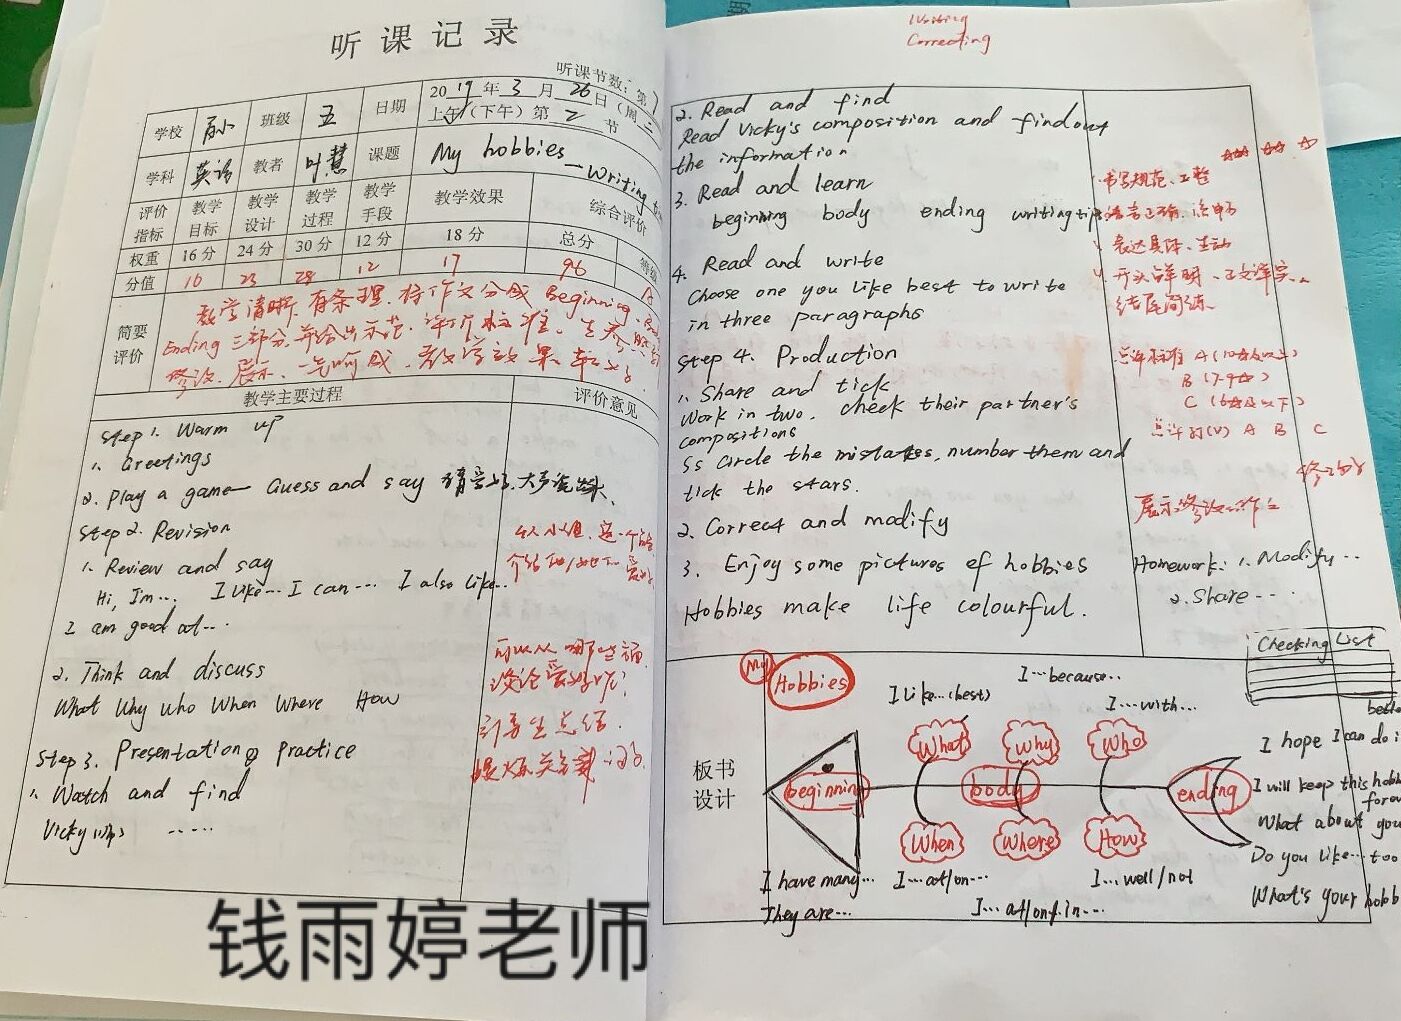 听课记录
听课节数：第
学校 班级 五 日期 2019年3月26日（周二
上午（下午）第2节
学科 英语 教者 叶慧 课题 My hobbies — writing
评价指标 教学目标 教学设计 教学过程 教学手段 教学效果 综合评价
权重 16分 24分 30分 12分 18分 总分
分值 16 23 28 12 17 96 A
简要评价
教学清晰、有条理，将作文分成 Beginning、
Ending 三部分，并给出示范、评价标准，生参照
修改、展示，一气呵成，教学效果较好。
教学主要过程 评价意见
Step 1. Warm up
1. Greetings
2. Play a game — Guess and say 大声说出来
Step 2. Revision
1. Review and say
Hi, I'm... I like... I can... I also like...
I am good at...
2. Think and discuss
What Why Who When Where How
Step 3. Presentation & Practice
1. Watch and find
Vicky
可以从哪些
谈论爱好呢？
引导生总结
Writing
Correcting
2. Read and find
Read Vicky's composition and find out
the information
3. Read and learn
beginning body ending writing tips
4. Read and write
Choose one you like best to write
in three paragraphs
Step 4. Production
1. Share and tick
Work in two. check their partner's
compositions
Ss circle the mistakes, number them and
tick the stars.
2. Correct and modify
3. Enjoy some pictures of hobbies
Hobbies make life colourful.
书写规范、工整
语言正确、流畅
表达具体、生动
开头鲜明、正文详实、
结尾简练
A (10☆及以上)
B (7-9☆)
C (6☆及以下)
(√) A B C
Homework: 1. Modify...
2. Share...
板书设计
My Hobbies
Checking List
I like...(best)
I...because...
I...with...
What Why Who
beginning body ending
When Where How
I have many...
They are...
I...at/on...
I...at/on/in...
I...well/not
I hope I can do i
I will keep this hobb
forev
What about you
Do you like... too
What's your hobb
钱雨婷老师